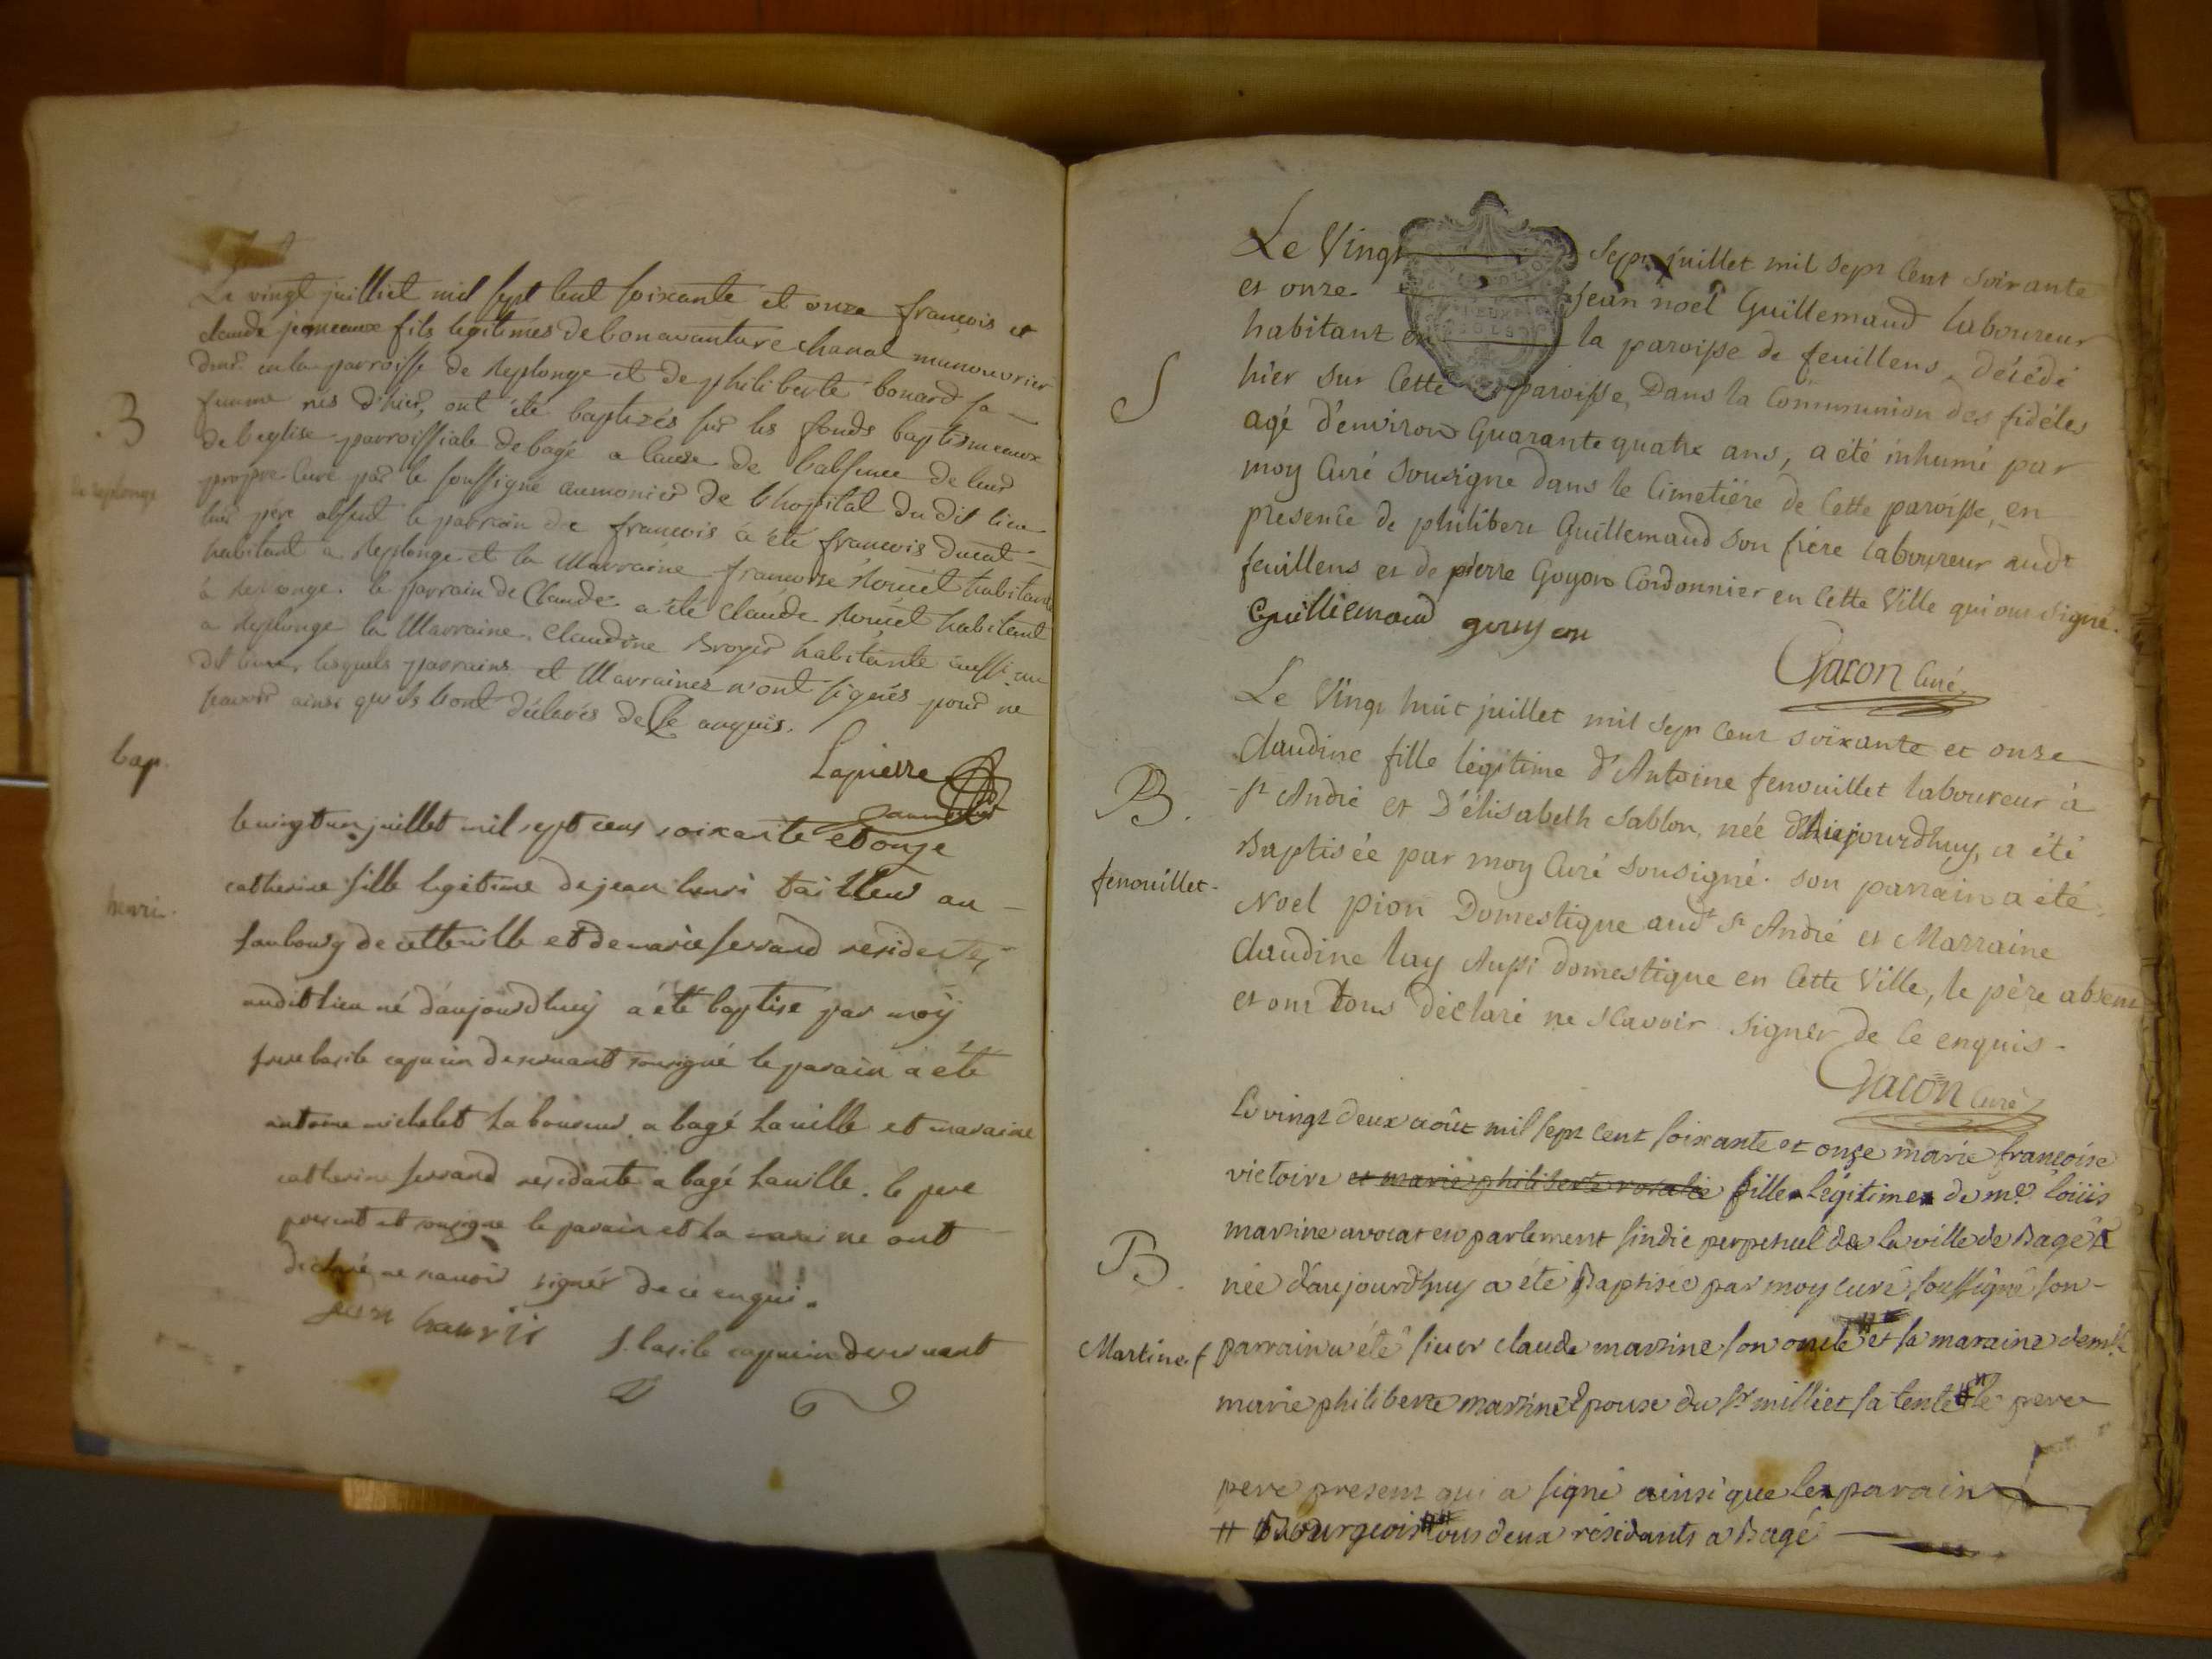 Le vingt juilliet mil sept cent soixante et onze francois et
claude jumeaux fils legitimes de bonavanture chanal manouvrier
dmt en la parroisse de Replonge et de philiberte bonard sa
femme nés d'hier, ont été baptizés sur les fonds baptismeaux
B
de l'eglise parroissiale de bagé a cause de l'absence de leur
propre curé par le soussigné aumonier de l'hopital du dit lieu
de replonge
leur pere absent le parrain de francois a été francois ducat
habitant a Replonge et la Marraine francoise Rouët habitante
à Replonge. le parrain de Claude a été claude Rouët habitant
a Replonge la Marraine, Claudine Broyer habitante aussi au
dit lieu, lesquels parrains et Marraines n'ont signés pour ne
scavoir ainsi qu'ils l'ont déclarés de Ce anquis.
Lapierre
aumonier
bap.
le vingt un juillet mil sept cens soixante et onze
catherine fille legitime de jean henri tailleur au
henri.
faubourg de cette ville et de marie ferrand residente
audit lieu né d'aujourdhuy a été baptisé par moÿ
frere basile capucin deservant sousigné le parain a été
antoine michelet laboureur a bagé la ville et maraine
catherine ferrand residante a bagé la ville. le pere
present et sousigne le parain et la maraine ont
declaré ne savoir signér de ce enquis.
jean hanrii
f. basile capucin deservant
Le Vingt sept juillet mil sept Cent soixante
et onze Jean noël Guillemaud laboureur
habitant en la paroisse de feuillens, décédé
hier sur Cette paroisse, Dans la Communion des fidéles
S
agé d'environ Quarante quatre ans, a été inhumé par
moy Curé Sousigné dans le Cimetiére de Cette paroisse, en
presence de philibert Guillemaud son frére laboureur audt
feuillens et de pierre Goyon Cordonnier en Cette Ville qui ont signé.
Guilliemaud gouyon
Gacon Curé
Le Vingt huit juillet mil sept Cent soixante et onze
Claudine fille légitime d'Antoine fenouillet laboureur à
B.
St André et D'élisabeth Sablon, née d'aujourdhuy, a été
Baptisée par moy Curé Sousigné. son parrain a été
fenouillet
Noel pion Domestique audt St André et Marraine
Claudine Luy Aussi domestique en Cette Ville, le pére absent
et ont tous déclaré ne scavoir signer de Ce enquis.
Gacon Curé
Le vingt deux aoüt mil sept cent soixante et onze marie françoise
victoire et marie philiberte rosalie fille légitime de me loüis
martine avocat en parlement sindic perpetuel de la ville de Bagé
B.
née d'aujourdhuy a été Baptisée par moy curé soussigné son
Martine f
parrain a été sieur claude martine son oncle # et sa maraine demlle
marie philiberte martine Epouse du sr milliet sa tente # le pere
pere present qui a signé ainsi que les parain
# Bourgeois ## tous deux résidants a Bagé